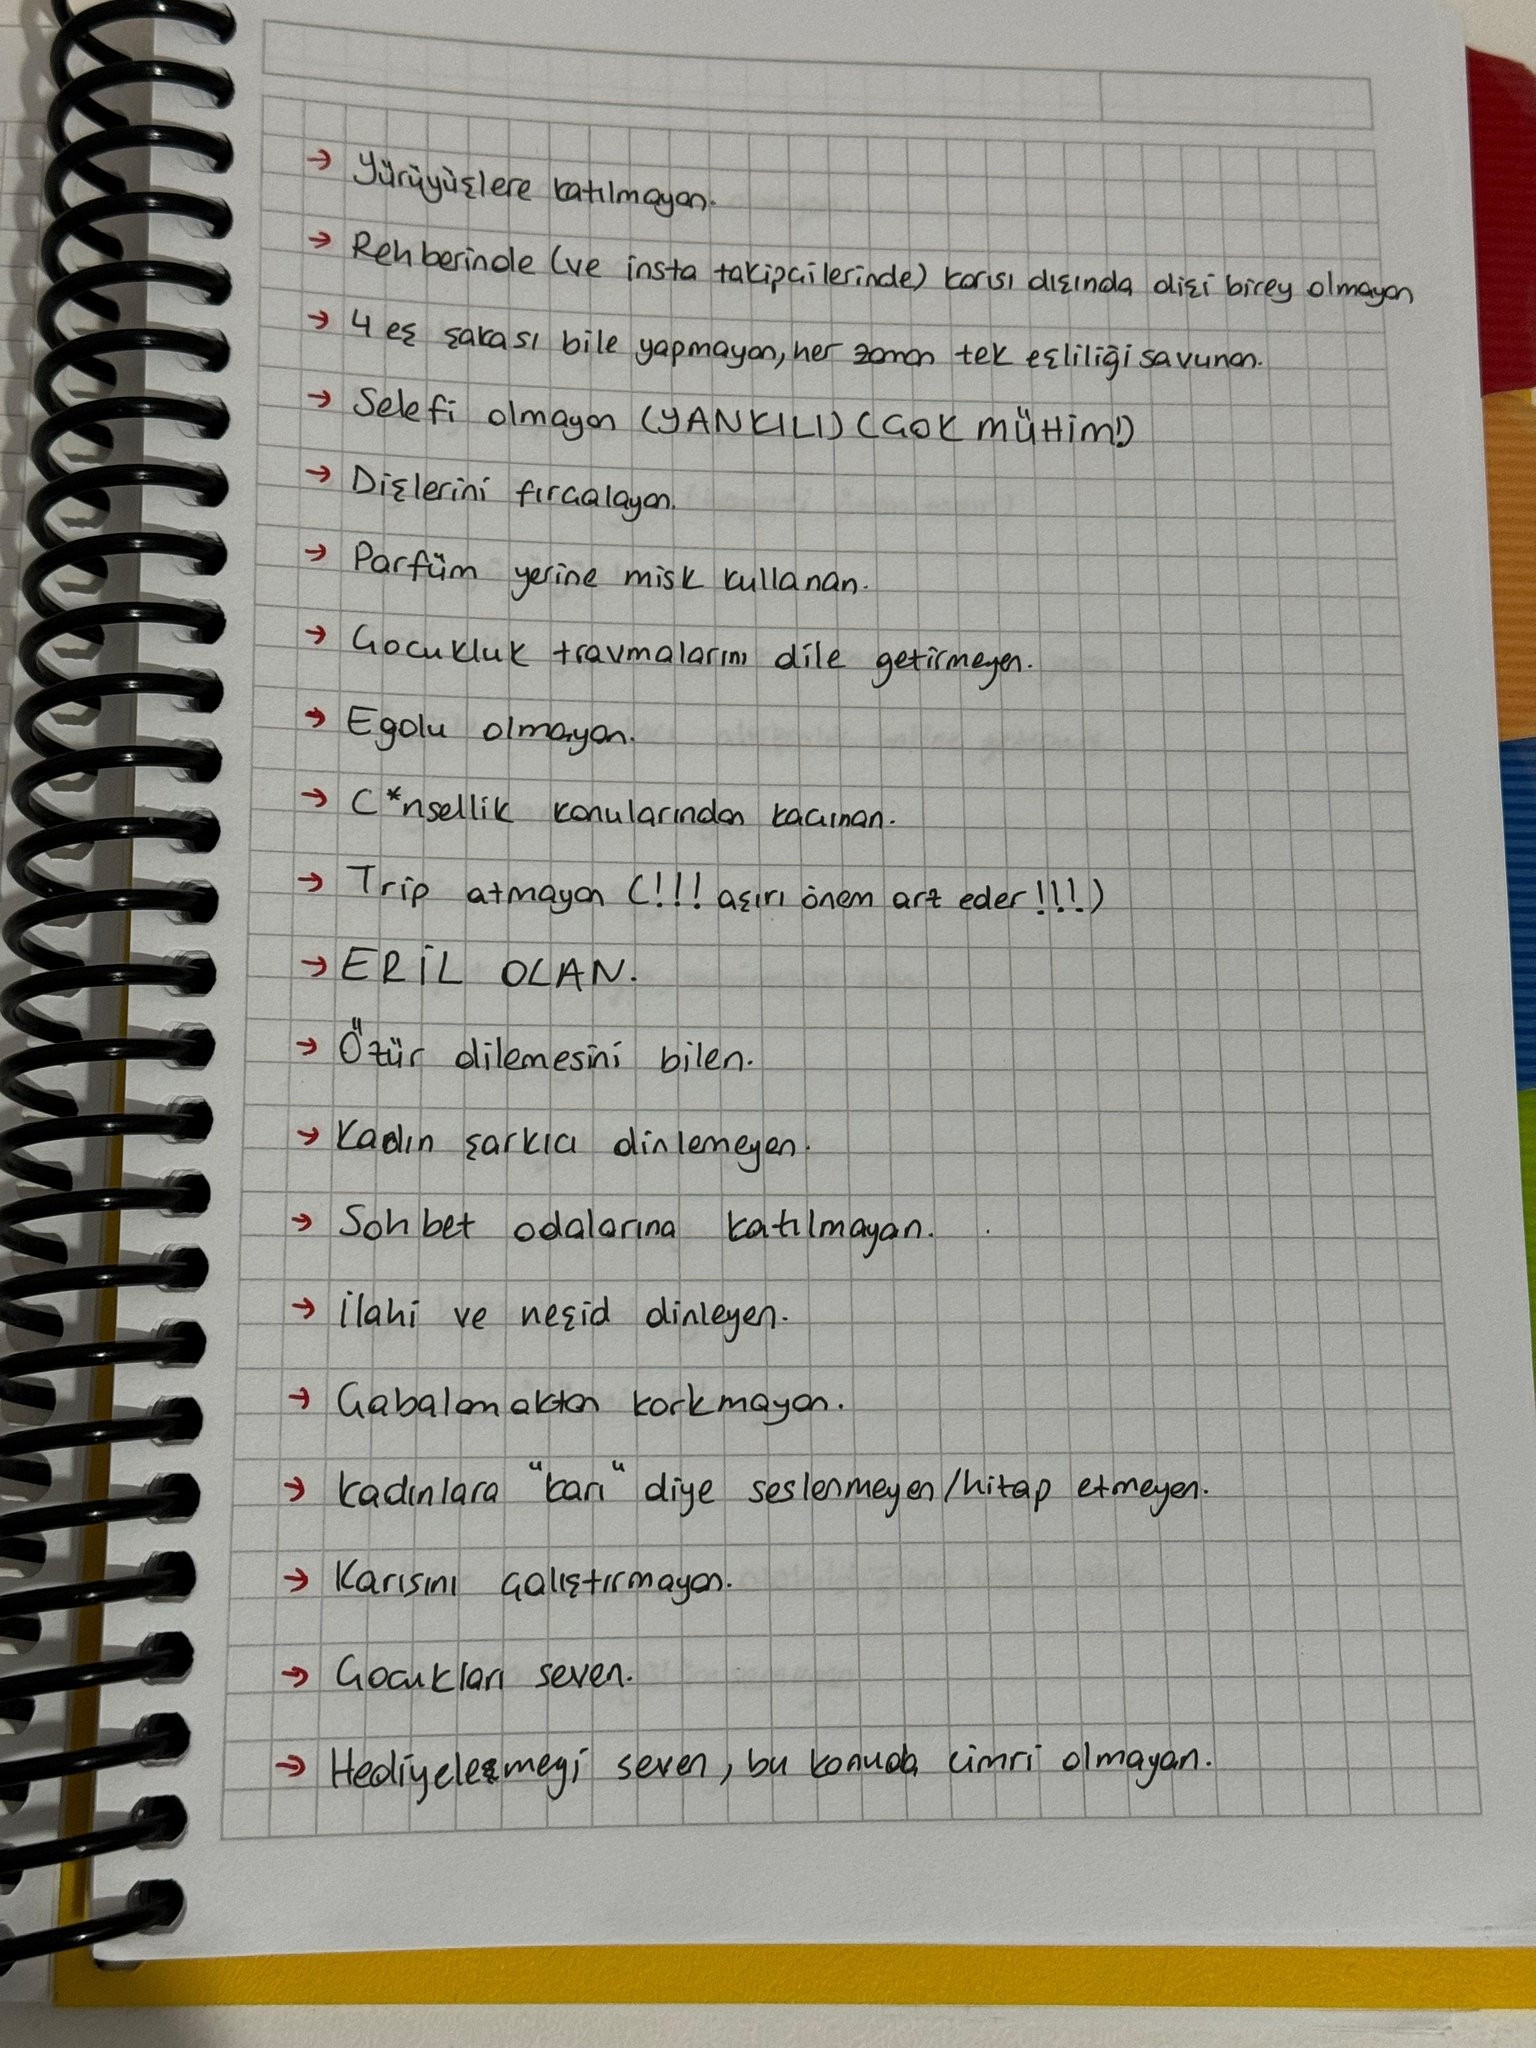 → Yürüyüşlere katılmayan.
→ Rehberinde (ve insta takipçilerinde) karısı dışında dişi birey olmayan
→ 4 eş şakası bile yapmayan, her zaman tek eşliliği savunan.
→ Selefi olmayan (YANKILI) (ÇOK MÜHİM!)
→ Dişlerini fırçalayan.
→ Parfüm yerine misk kullanan.
→ Çocukluk travmalarını dile getirmeyen.
→ Egolu olmayan.
→ C*nsellik konularından kaçınan.
→ Trip atmayan (!!! aşırı önem arz eder!!!)
→ ERİL OLAN.
→ Özür dilemesini bilen.
→ Kadın şarkıcı dinlemeyen.
→ Sohbet odalarına katılmayan.
→ İlahi ve neşid dinleyen.
→ Çabalamaktan korkmayan.
→ Kadınlara "karı" diye seslenmeyen/hitap etmeyen.
→ Karısını çalıştırmayan.
→ Çocukları seven.
→ Hediyeleşmeyi seven, bu konuda cimri olmayan.